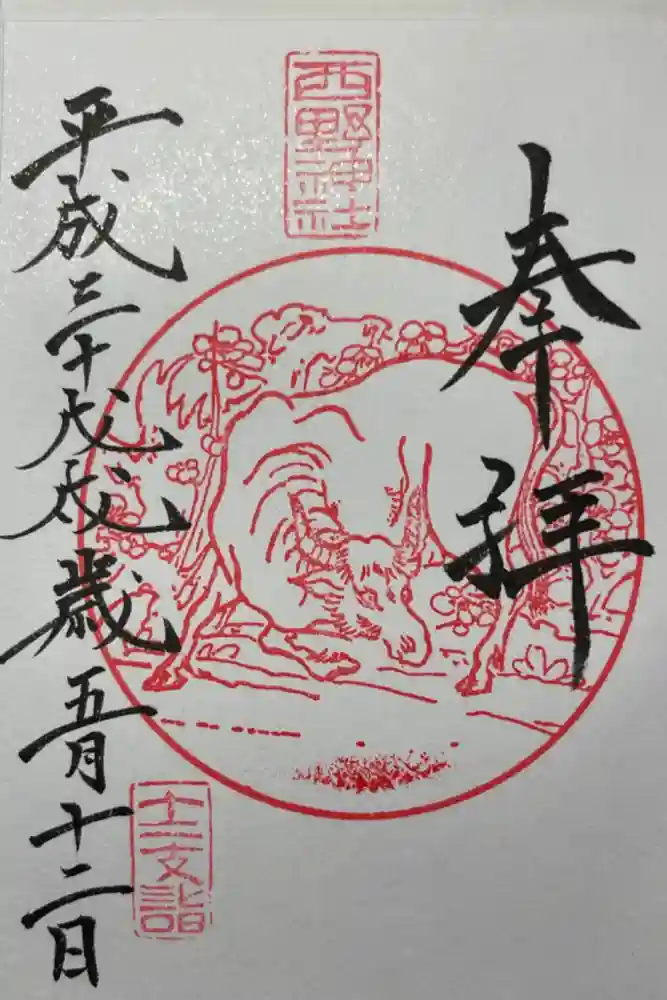 奉拝
西野神社
平成三十戊戌歳五月十二日
十二支詣